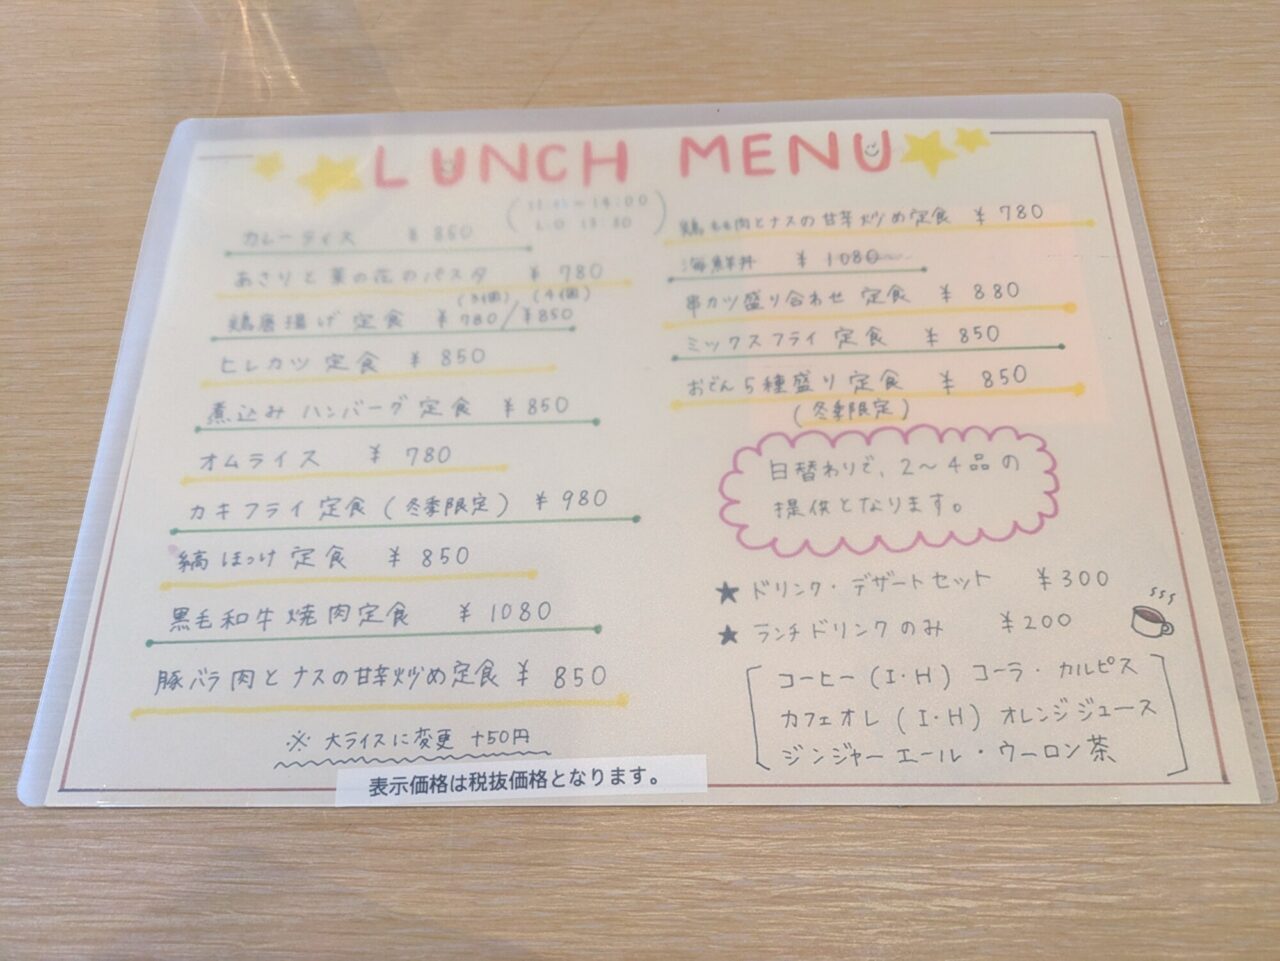 LUNCH MENU
L.O 13:30
カレーライス ¥850
あさりと菜の花のパスタ ¥780
(3個) (4個)
鶏唐揚げ定食 ¥780/¥850
ヒレカツ定食 ¥850
煮込みハンバーグ定食 ¥850
オムライス ¥780
カキフライ定食(冬季限定) ¥980
縞ほっけ定食 ¥850
黒毛和牛焼肉定食 ¥1080
豚バラ肉とナスの甘辛炒め定食 ¥850
※大ライスに変更 +50円
表示価格は税抜価格となります。
鶏もも肉とナスの甘辛炒め定食 ¥780
海鮮丼 ¥1080~
串カツ盛り合わせ定食 ¥880
ミックスフライ定食 ¥850
おでん5種盛り定食 ¥850
(冬季限定)
日替わりで、2～4品の
提供となります。
★ドリンク・デザートセット ¥300
★ランチドリンクのみ ¥200
コーヒー(I・H) コーラ・カルピス
カフェオレ(I・H) オレンジジュース
ジンジャーエール・ウーロン茶